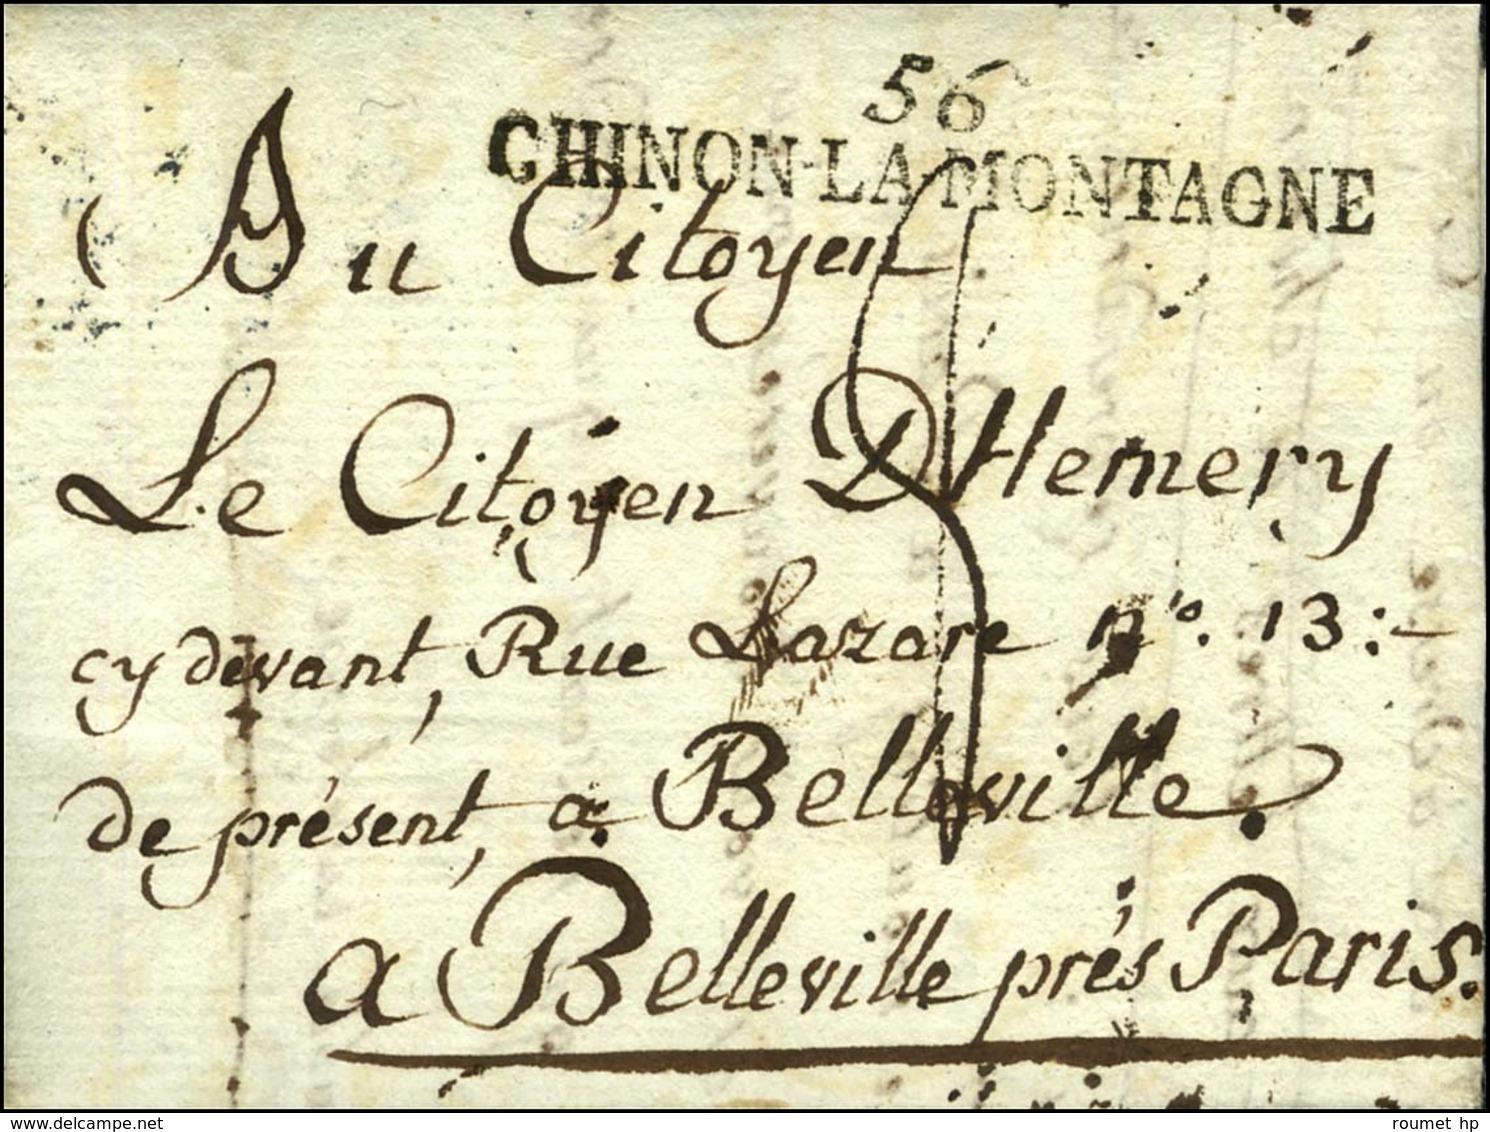 56
CHINON-LA-MONTAGNE
Au Citoyen
Le Citoyen DHemery
cy devant, Rue Lazare no. 13:
de présent, a Belleville.
a Belleville prés Paris.
www.delcampe.net
roumet hp